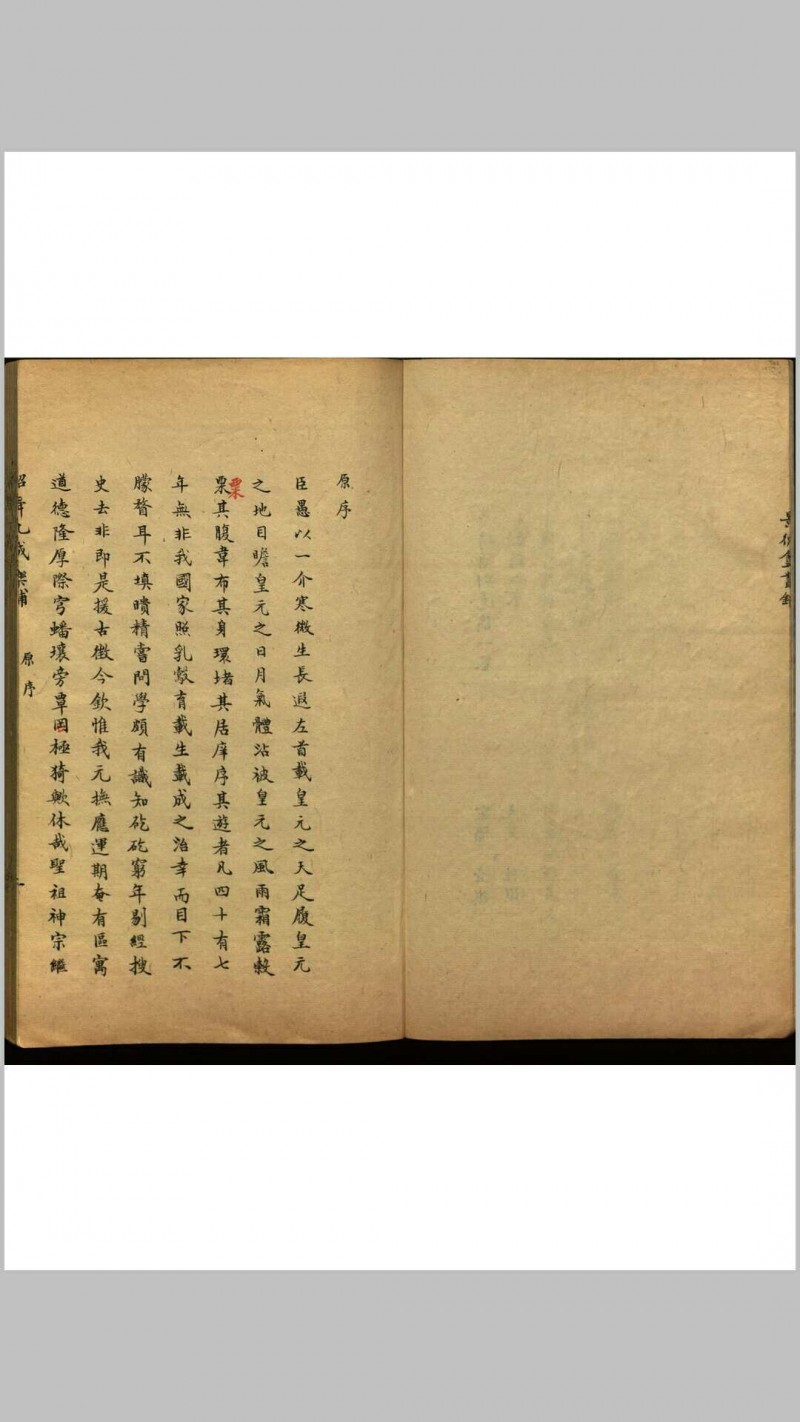 原序
臣愚以一介寒微生長遐左首載皇元之天足履皇元
之地目瞻皇元之日月氣體沾被皇元之風雨霜露穀
粟其腹韋布其身環堵其居庠序其遊者凡四十有七
粟
年無非我國家照乳鷇育載生載成之治幸而目下不
矇瞀耳不填聵精嘗問學頗有識知矻矻窮年剔經搜
史去非即是援古徵今欽惟我元撫應運期奄有區寓
道德隆厚際穹蟠壤旁覃罔極猗歟休哉聖祖神宗繼
韶舞九成樂補
原序
一